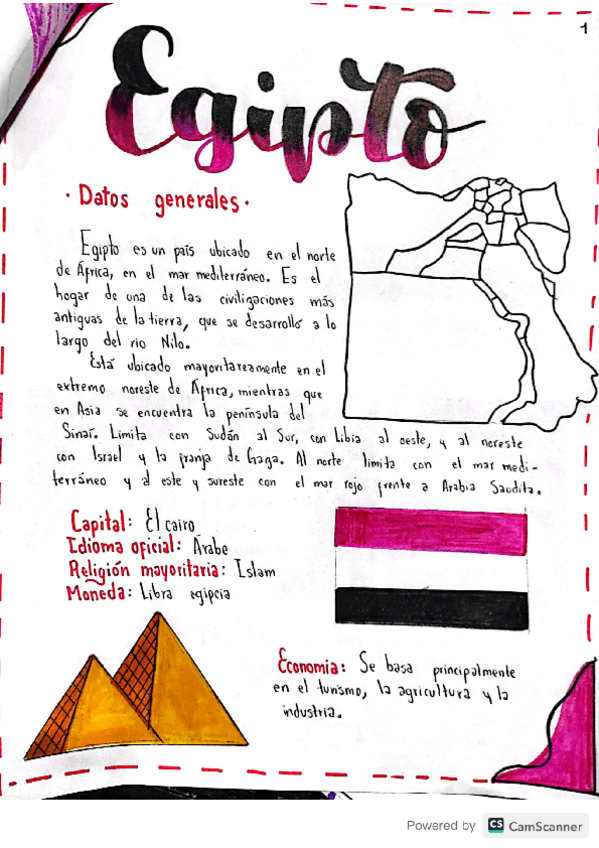 1
Egipto
· Datos generales ·
Egipto es un país ubicado en el norte
de África, en el mar mediterráneo. Es el
hogar de una de las civilizaciones más
antiguas de la tierra, que se desarrolló a lo
largo del rio Nilo.
Está ubicado mayoritareamente en el
extremo noreste de África, mientras que
en Asia se encuentra la península del
Sinaí. Limita con Sudán al Sur, con Libia al oeste, y al noreste
con Israel y la franja de Gaza. Al norte limita con el mar medi-
terráneo y al este y sureste con el mar rojo frente a Arabia Saudita.
Capital: El cairo
Idioma oficial: Árabe
Religión mayoritaria: Islam
Moneda: Libra egipcia
Economia: Se basa principalmente
en el turismo, la agricultura y la
industria.
Powered by CS CamScanner